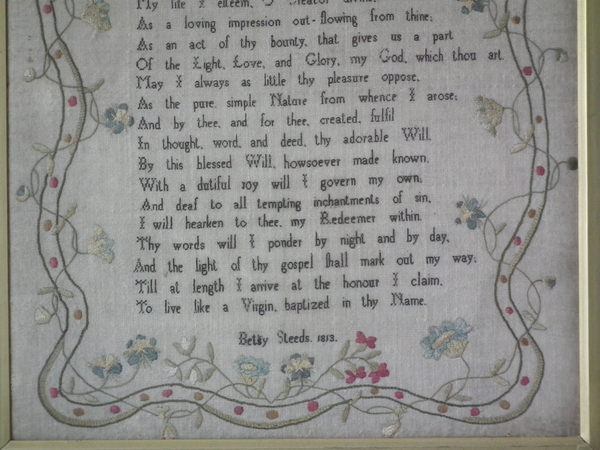 My life I esteem, O Creator divine,
As a loving impression out-flowing from thine;
As an act of thy bounty, that gives us a part
Of the Light, Love, and Glory, my God, which thou art.
May I always as little thy pleasure oppose,
As the pure, simple Nature from whence I arose;
And by thee, and for thee, created, fulfil
In thought, word, and deed, thy adorable Will.
By this blessed Will, howsoever made known,
With a dutiful joy will I govern my own;
And deaf to all tempting inchantments of sin,
I will hearken to thee, my Redeemer within.
Thy words will I ponder by night and by day,
And the light of thy gospel shall mark out my way;
Till at length I arrive at the honour I claim,
To live like a Virgin, baptized in thy Name.
Betsy Steeds. 1813.